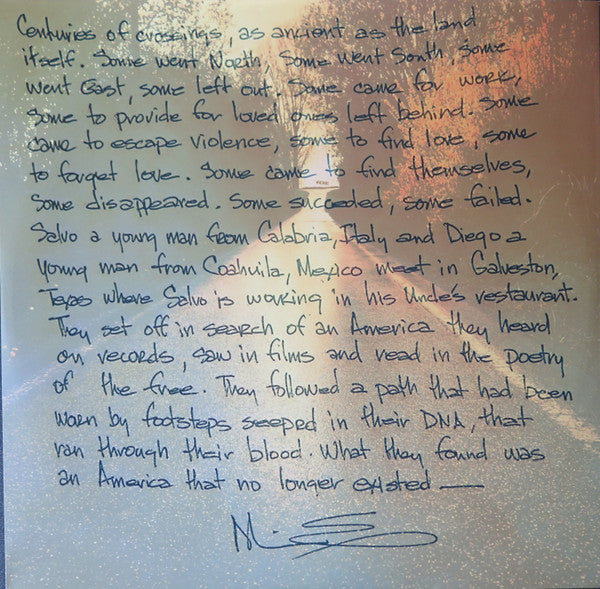 Centuries of crossings, as ancient as the land
itself. Some went North, Some went South, some
went East, some left out. Some came for work,
Some to provide for loved ones left behind. Some
came to escape violence, some to find love, some
to forget love. Some came to find themselves,
some disappeared. Some succeeded, some failed.
Salvo a young man from Calabria, Italy and Diego a
young man from Coahuila, Mexico meet in Galveston,
Texas where Salvo is working in his Uncle's restaurant.
They set off in search of an America they heard
on records, saw in films and read in the poetry
of the free. They followed a path that had been
worn by footsteps seeped in their DNA, that
ran through their blood. What they found was
an America that no longer existed —